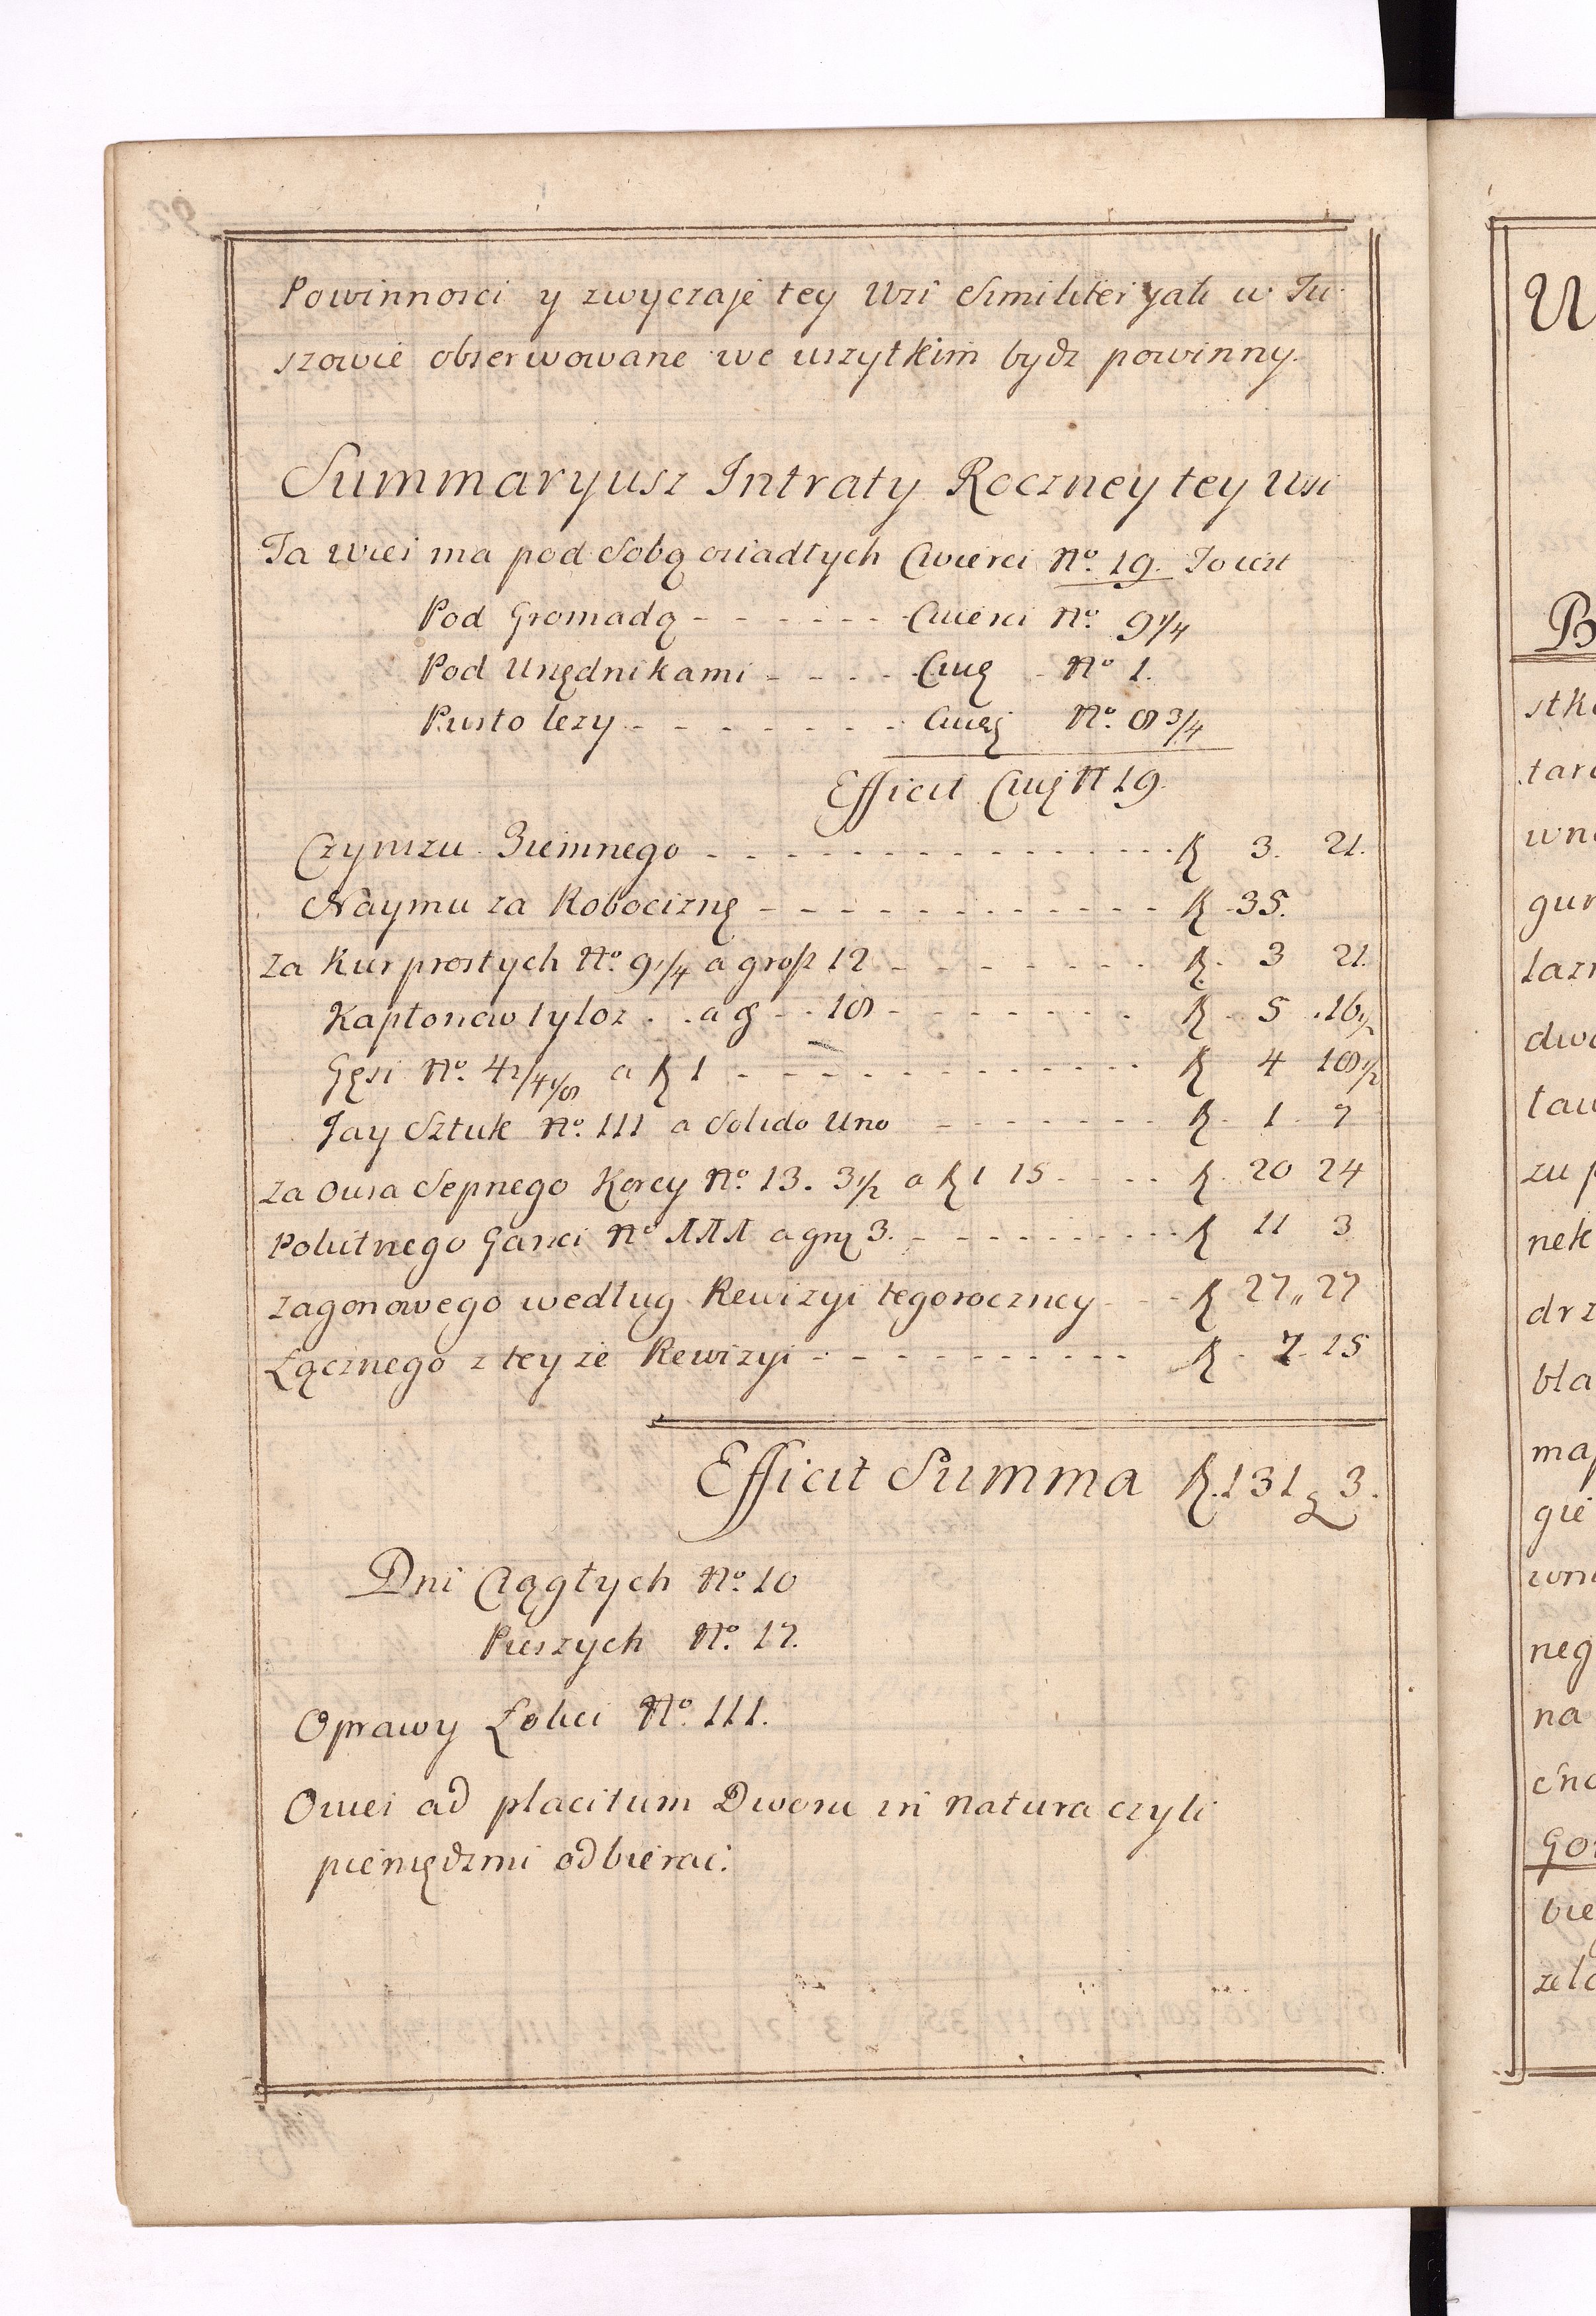 Powinnosci y zwyczaje tey Wsi Similiter jak w Tu-
szowie obserwowane we wszytkim bydz powinny.
Summaryusz Intraty Roczney tey Wsi
Ta Wies ma pod Sobą osiadłych Cwierci No. 19. To iest
Pod Gromadą - - - - - - Cwierci No. 9 1/4
Pod Urzędnikami - - - - Cwię No 1.
Pusto lezy - - - - - - - Cwię No. 8 3/4
Efficit Cwię N 19.
Czynszu Ziemnego - - - - - - - - - - - - - - - R 3. 21.
Naymu za Robociznę - - - - - - - - - - - - R 35.
Za Kur prostych No. 9 1/4 a grosz 12 - - - - - - - R. 3 21.
Kapłonow tyloz . . a g - . 18 - - - - - - - R 5 .16 1/2
Gęsi No. 4 2/4 1/8 a R 1 - - - - - - - - - - - R 4 18 1/2
Jay Sztuk No. 111 a Solido Uno - - - - - - - R. 1 7
Za Owsa Sepnego Korcy No. 13. 3 1/2 a R 1 15 - - - - R. 20 24
Polutnego Garci No 111 a gr 3. - - - - - - - - - - R 11 3
Zagonowego według Rewizyi tegoroczney - - - R 27 „ 27
Łącznego z tey ze Rewizyi - - - - - - - - - - - R - 7 - 15
Efficit Summa R. 131 g 3.
Dni Ciągłych No. 10
Pieszych No. 17.
Oprawy Łokci No. 111.
Owiei ad placitum Dworu in Natura czyli
pieniędzmi odbierac.
92
U
B
stk
tar
wn
gur
lazn
dwo
tau
zu p
nek
drz
bla
ma
gie
wn
neg
na
cno
Go
bie
zelo